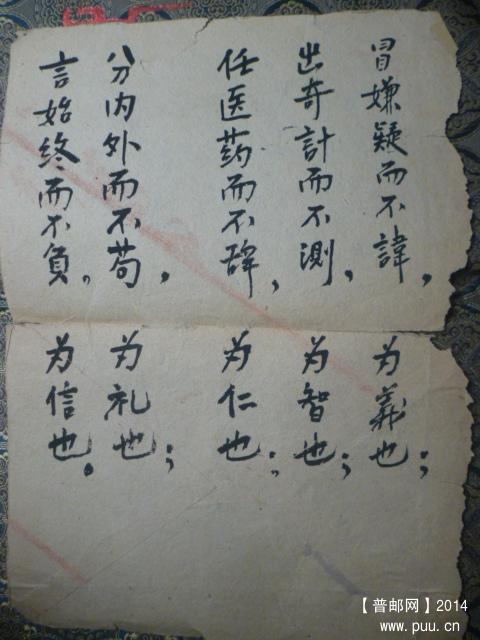 冒嫌疑而不諱，为義也；
出奇計而不測，为智也；
任医药而不辞，为仁也；
分内外而不苟，为礼也；
言始终而不負，为信也。
【普邮网】2014
www.puu.cn